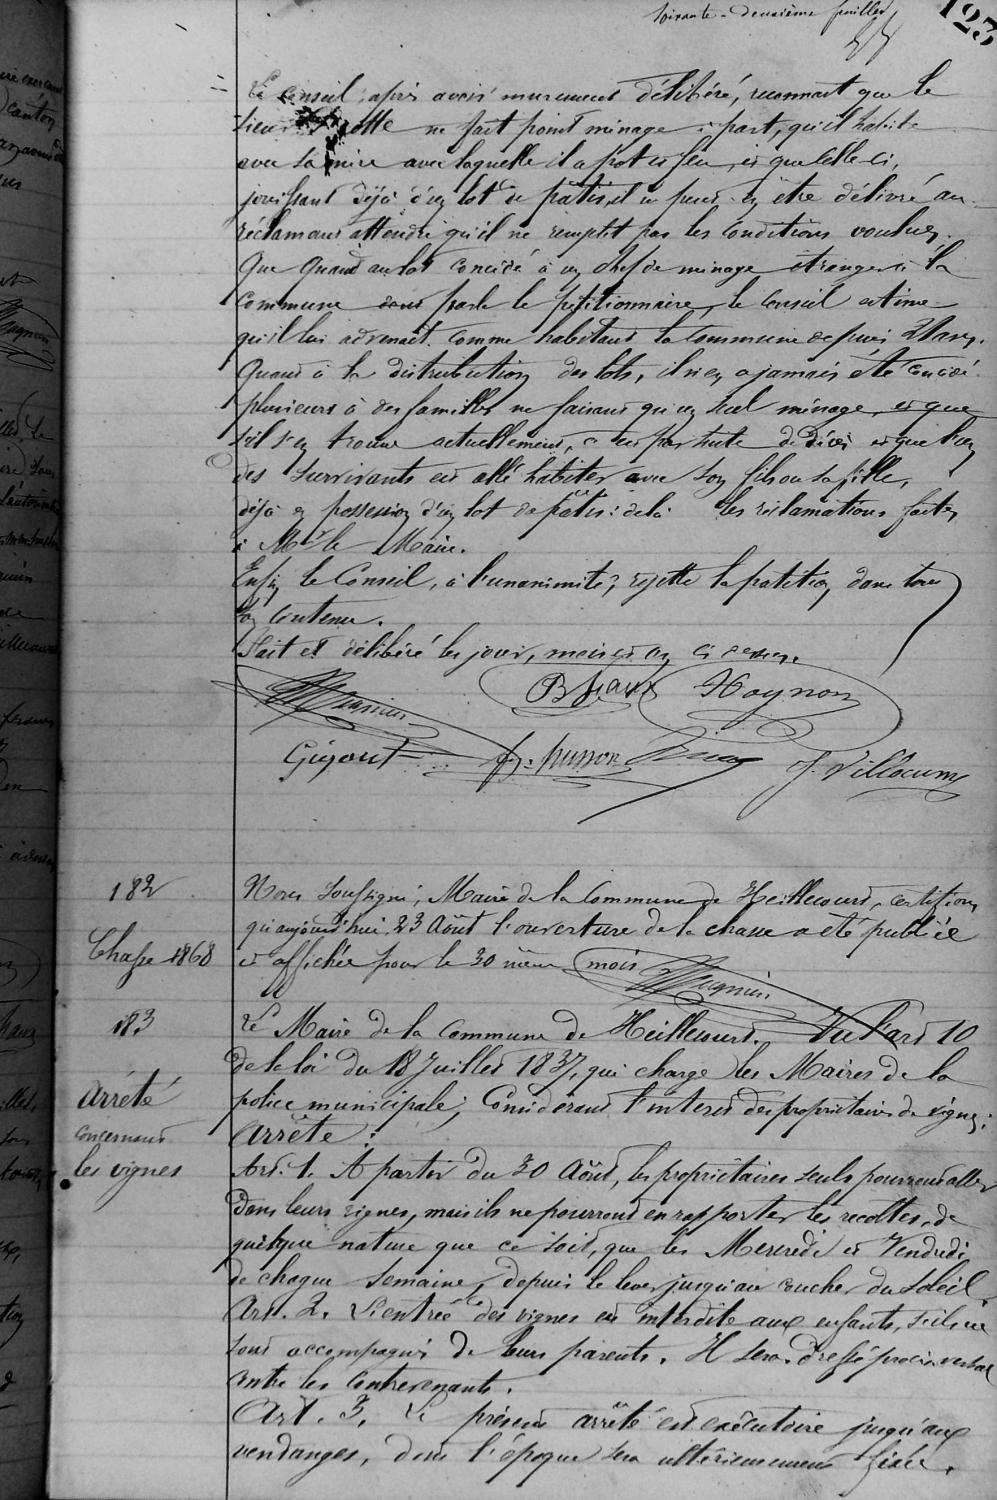 soixante-deuxième feuillet
123
Le Conseil, après avoir murement délibéré, reconnait que le
sieur ne fait point ménage à part, qu'il habite
avec sa mère avec laquelle il a pot et feu, et que celle-ci,
jouissant déjà d'un lot de pâtis, il ne peut en être délivré au
réclamant attendu qu'il ne remplit pas les conditions voulues.
Que quant au lot concédé à un chef de ménage étranger à la
commune dont parle le pétitionnaire, le Conseil estime
qu'il lui advenait comme habitant la Commune depuis ans.
Quant à la distribution des lots, il n'en a jamais été concédé
plusieurs à des familles ne faisant qu'un seul ménage, et que
s'il s'en trouve actuellement, c'est par suite de décès et que l'un
des survivants est allé habiter avec son fils ou sa fille,
déjà en possession d'un lot de pâtis: de là les réclamations faites
à Mr le Maire.
Enfin le Conseil, à l'unanimité, rejette la pétition dans tout
son contenu.
Fait et délibéré les jour, mois et an ci dessus.
Noynon
Gigout husson J. Villaume
182
Chasse 1868
Nous soussigné, Maire de la Commune de Heillecourt, certifions
qu'aujourd'hui 23 Août l'ouverture de la chasse a été publiée
et affichée pour le 30 même mois
183
Arrêté
concernant
les vignes
Le Maire de la Commune de Heillecourt, Vu l'art 10
de la loi du 18 Juillet 1837, qui charge les Maires de la
police municipale; Considérant l'intérêt des propriétaires de vignes;
Arrête:
Art. 1. A partir du 30 Août, les propriétaires seuls pourront aller
dans leurs vignes, mais ils ne pourront en rapporter les récoltes, de
quelque nature que ce soit, que les Mercredi et Vendredi
de chaque semaine, depuis le lever jusqu'au coucher du Soleil.
Art. 2. L'entrée des vignes est interdite aux enfants, s'ils ne
sont accompagnés de leurs parents. Il sera dressé procès verbal
contre les contrevenants.
Art. 3. Le présent arrêté est exécutoire jusqu'aux
vendanges, dont l'époque sera ultérieurement fixée.